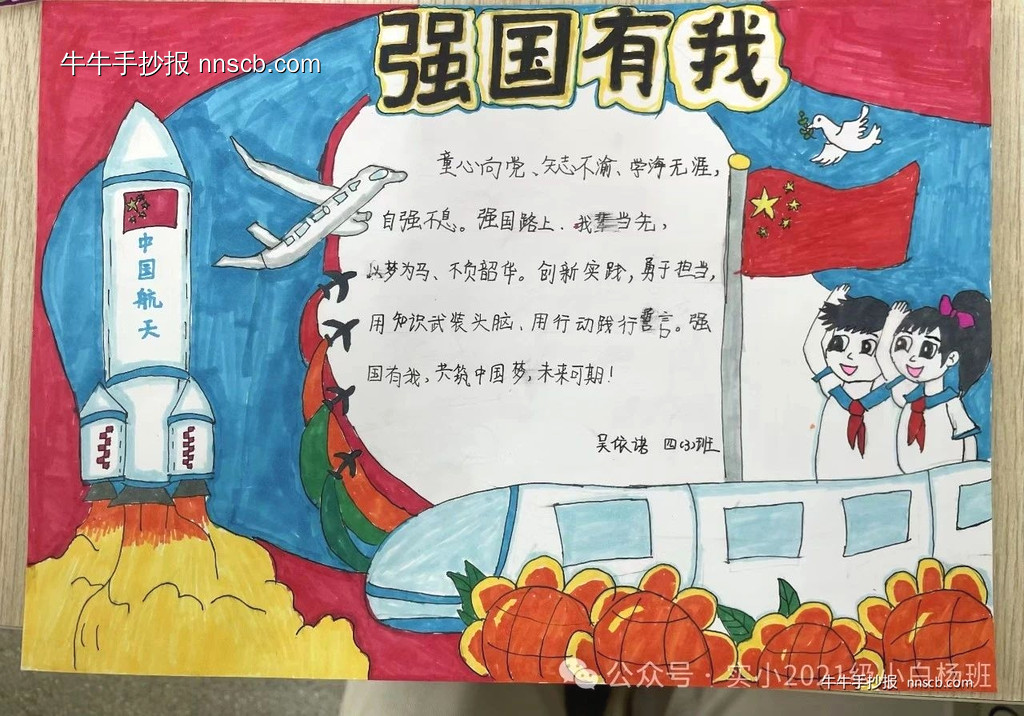 强国有我
牛牛手抄报 nnscb.com
中国航天
童心向党、矢志不渝、学海无涯,
自强不息。强国路上、我辈当先,
以梦为马、不负韶华。创新实践,勇于担当,
用知识武装头脑、用行动践行誓言。强
国有我,共筑中国梦,未来可期!
吴依诺 四(3)班
公众号·实小2021级小白杨班
牛牛手抄报 nnscb.com